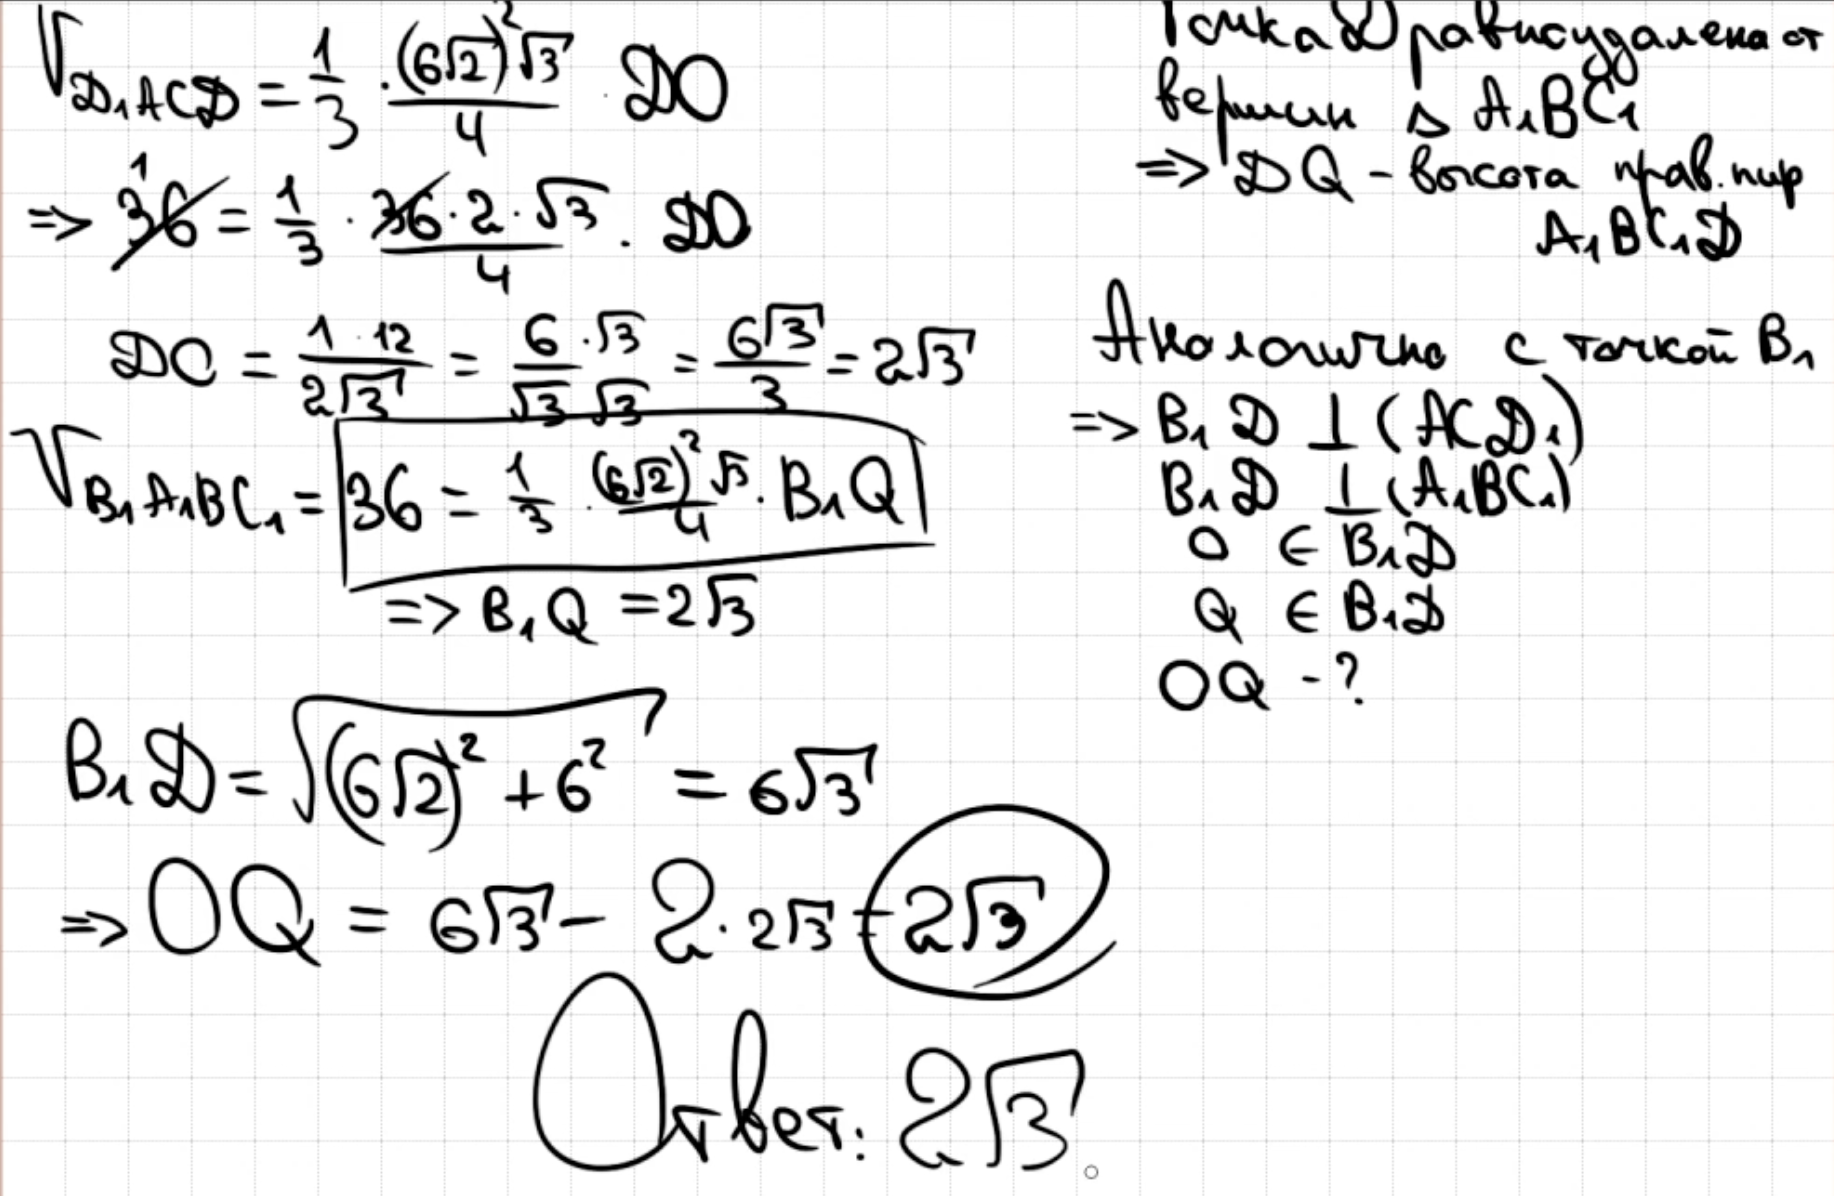 V_{D₁ACD} = 1/3 · (6√2)²√3/4 · DO
=> 36 = 1/3 · 36·2·√3/4 · DO
1
DO = 1·12/2√3 = 6·√3/√3 √3 = 6√3/3 = 2√3
V_{B₁A₁BC₁} = 36 = 1/3 · (6√2)²√3/4 · B₁Q
=> B₁Q = 2√3
B₁D = √((6√2)² + 6²) = 6√3
=> OQ = 6√3 - 2·2√3 = 2√3
Ответ: 2√3
Точка D равноудалена от
вершин △ A₁BC₁
=> DQ - высота прав. пир
A₁BC₁D
Аналогично с точкой B₁
=> B₁D ⊥ (ACD₁)
B₁D ⊥ (A₁BC₁)
O ∈ B₁D
Q ∈ B₁D
OQ - ?